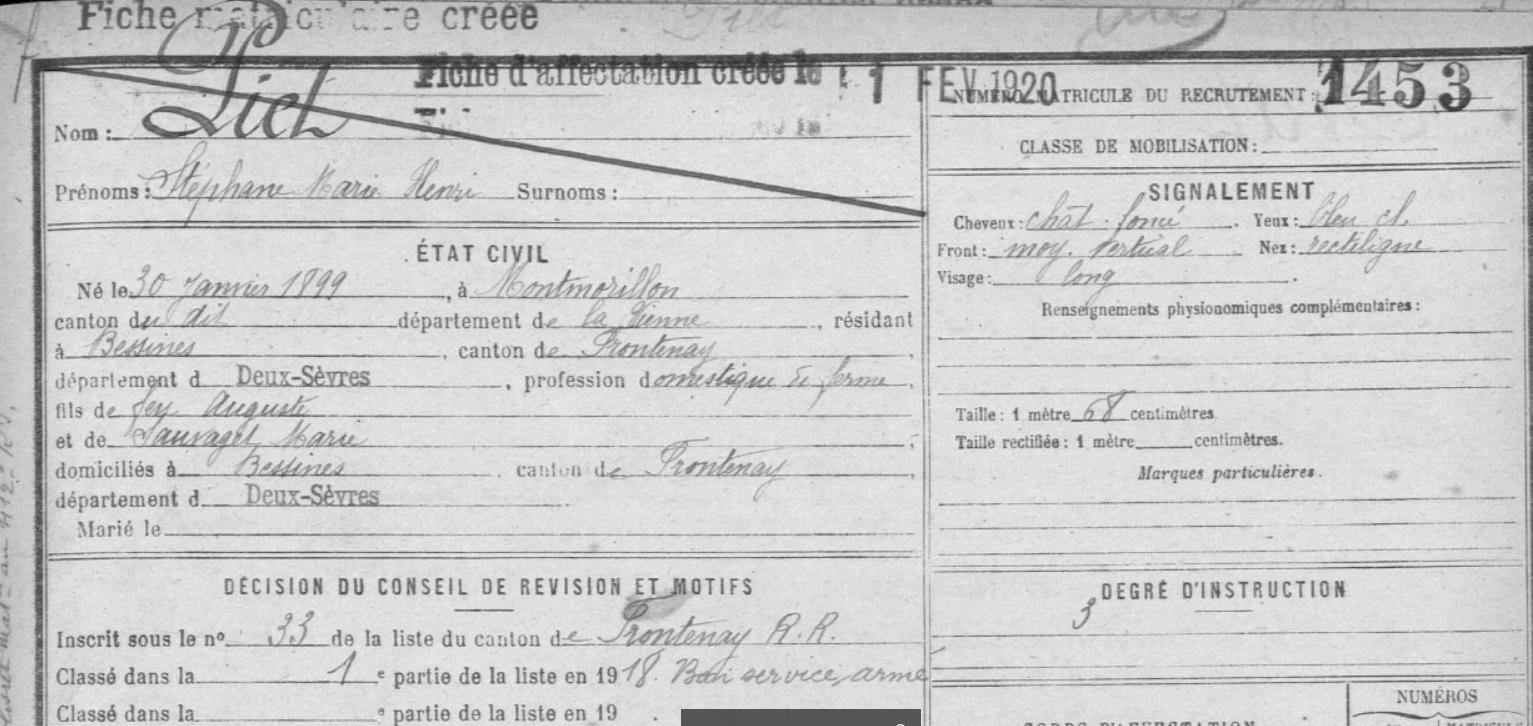 Fiche matriculaire créée
Fiche d'affectation créée le 1 FEV 1920
NUMÉRO MATRICULE DU RECRUTEMENT : 1453
Nom :
CLASSE DE MOBILISATION :
Prénoms : Stéphane Marie Henri Surnoms :
SIGNALEMENT
Cheveux : chât. foncé . Yeux : bleu cl.
Front : moy. vertical Nez : rectiligne
Visage : long .
Renseignements physionomiques complémentaires :
Taille : 1 mètre 68 centimètres.
Taille rectifiée : 1 mètre centimètres.
Marques particulières.
ÉTAT CIVIL
Né le 30 Janvier 1899 , à Montmorillon
canton du dit département de la Vienne , résidant
à Bessines , canton de Frontenay ,
département d Deux-Sèvres , profession domestique de ferme ,
fils de feu Auguste
et de Sauvaget Marie ,
domiciliés à Bessines , canton de Frontenay ,
département d Deux-Sèvres .
Marié le
DÉCISION DU CONSEIL DE REVISION ET MOTIFS
Inscrit sous le n° 33 de la liste du canton de Frontenay R. R.
Classé dans la 1 e partie de la liste en 1918. Bon service armé
Classé dans la e partie de la liste en 19 .
DEGRÉ D'INSTRUCTION
3
NUMÉROS
CORPS D'AFFECTATION